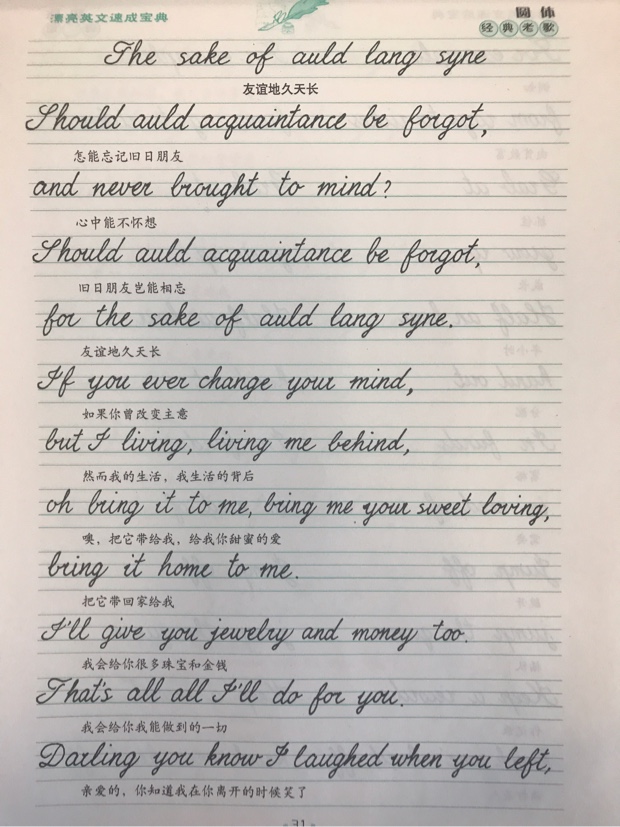 漂亮英文速成宝典
圆体
经典老歌
The sake of auld lang syne
友谊地久天长
Should auld acquaintance be forgot,
怎能忘记旧日朋友
and never brought to mind?
心中能不怀想
Should auld acquaintance be forgot,
旧日朋友岂能相忘
for the sake of auld lang syne.
友谊地久天长
If you ever change your mind,
如果你曾改变主意
but I living, living me behind,
然而我的生活，我生活的背后
oh bring it to me, bring me your sweet loving,
噢，把它带给我，给我你甜蜜的爱
bring it home to me.
把它带回家给我
I'll give you jewelry and money too.
我会给你很多珠宝和金钱
That's all all I'll do for you.
我会给你我能做到的一切
Darling you know I laughed when you left,
亲爱的，你知道我在你离开的时候笑了
- 31 -